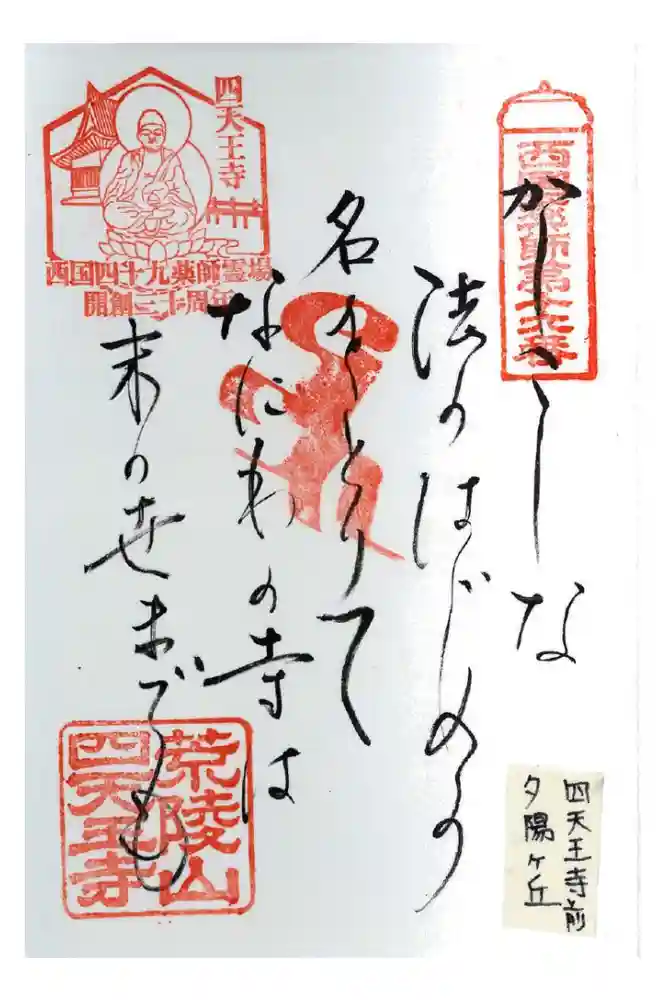 西国薬師第十六番
かしこしな
法のはじめの
名をとりて
なにわの寺は
末の世までも
四天王寺
西国四十九薬師霊場
開創三十周年
荒陵山
四天王寺
四天王寺前
夕陽ヶ丘